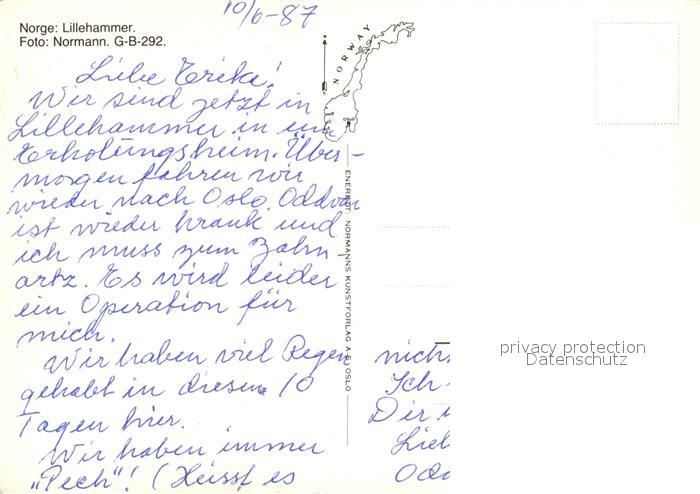 10/6-87
Norge: Lillehammer.
Foto: Normann. G-B-292.
NORWAY
OSLO
Liebe Erika!
Wir sind jetzt in
Lillehammer in ein
Erholungsheim. Über-
morgen fahren wir
wieder nach Oslo. Oddvar
ist wieder krank und
ich muss zum Zahn-
artz. Es wird leider
ein Operation für
mich.
Wir haben viel Regen
gehabt in diesen 10
Tagen hier.
Wir haben immer
„Pech"! (Heisst es
ENERETT NORMANNS KUNSTFORLAG A.S. OSLO
nicht
Ich
Dir
Lieb
Odd
privacy protection
Datenschutz